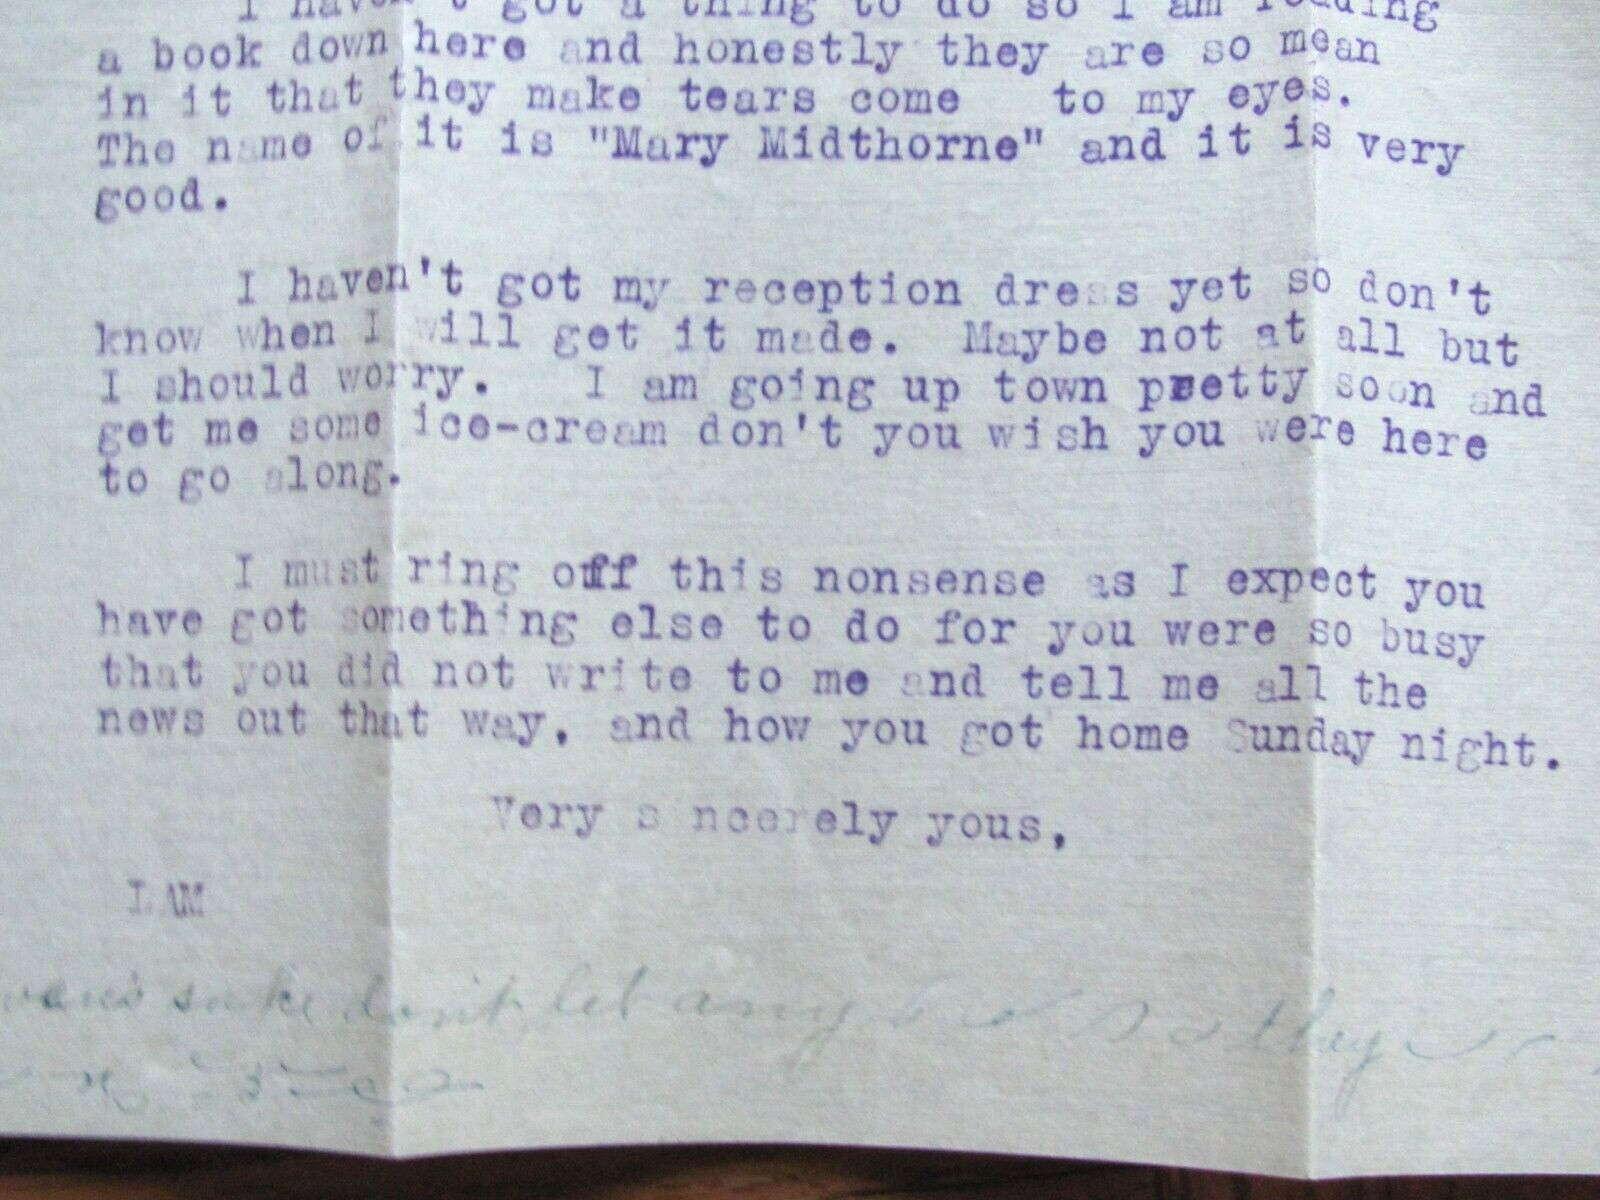 I haven't got a thing to do so I am reading
a book down here and honestly they are so mean
in it that they make tears come to my eyes.
The name of it is "Mary Midthorne" and it is very
good.
I haven't got my reception dress yet so don't
know when I will get it made. Maybe not at all but
I should worry. I am going up town pretty soon and
get me some ice-cream don't you wish you were here
to go along.
I must ring off this nonsense as I expect you
have got something else to do for you were so busy
that you did not write to me and tell me all the
news out that way, and how you got home Sunday night.
Very sincerely yous,
LAM
sake don't let any they